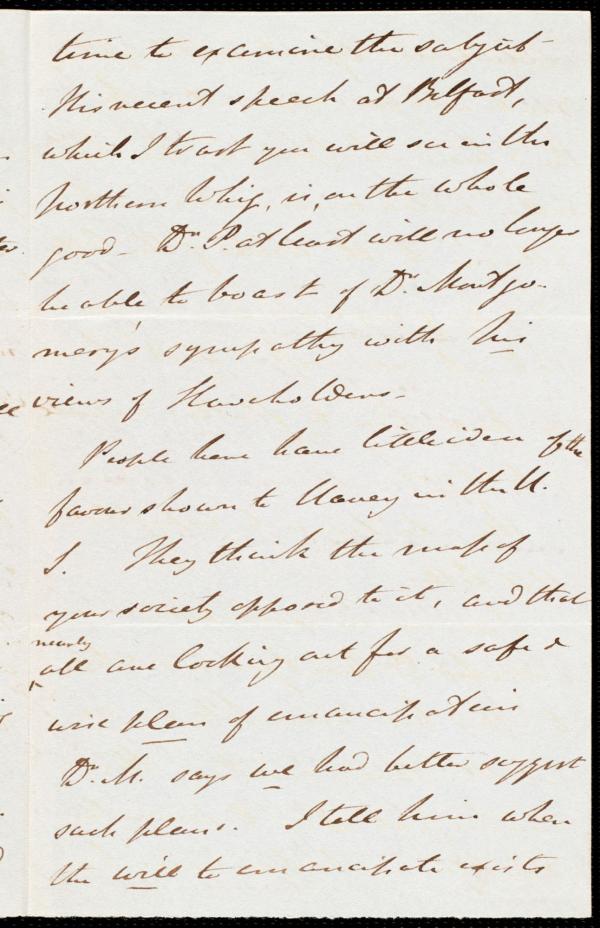 time to examine the subject -
His recent speech at Belfast,
which I trust you will see in the
Northern Whig, is, on the whole
good - Dr. P. at least will no longer
be able to boast of Dr. Montgo-
mery's sympathy with his
views of Slaveholders -
People here have little idea of the
favour shown to slavery in the U.
S. They think the mass of
your society opposed to it, and that
nearly
all are looking out for a safe &
wise plan of emancipation
Dr. M. says we had better suggest
such plans. I tell him when
the will to emancipate exists